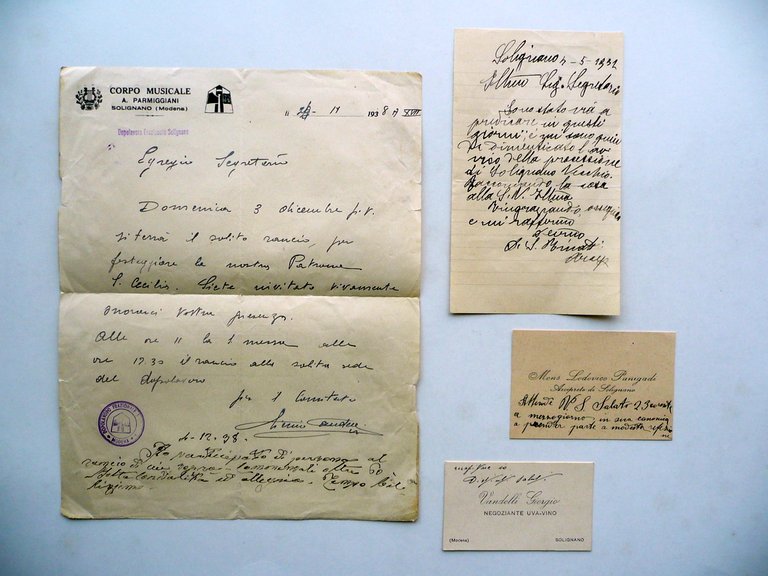 CORPO MUSICALE
A. PARMIGGIANI
SOLIGNANO (Modena)
1938 XVII
Dopolavoro Frazionale Solignano
Egregio Segretario
Domenica 3 dicembre p.v.
si terrà il solito rancio, per
festeggiare la nostra Patrona
S. Cecilia. Siete invitato vivamente
onorarci vostra presenza.
Alle ore 11 la S messa alle
ore 12.30 il rancio alla solita sede
del dopolavoro
per il Comitato
MODENA
4-12-38.
Ho partecipato di persona al
rancio di cui sopra
Molta cordialità ed allegria. Tempo bel
lissimo.
Solignano 4-5-1931
Ill.mo Sig. Segretario
Sono stato via a
predicare in questi
giorni e mi sono quin
di dimenticato l'av
viso della processione
di Solignano Vecchio.
Raccomando la cosa
alla S.V. Ill.ma
Ringraziando, ossequio
e mi raffermo
Devmo
Di S.
Mons. Lodovico Panigadi
Arciprete di Solignano
Attende V. S. Sabato 23 corrente
a mezzogiorno, in sua canonica
a prender parte a modesta refezio
ne
Vandelli Giorgio
NEGOZIANTE UVA-VINO
(Modena) SOLIGNANO